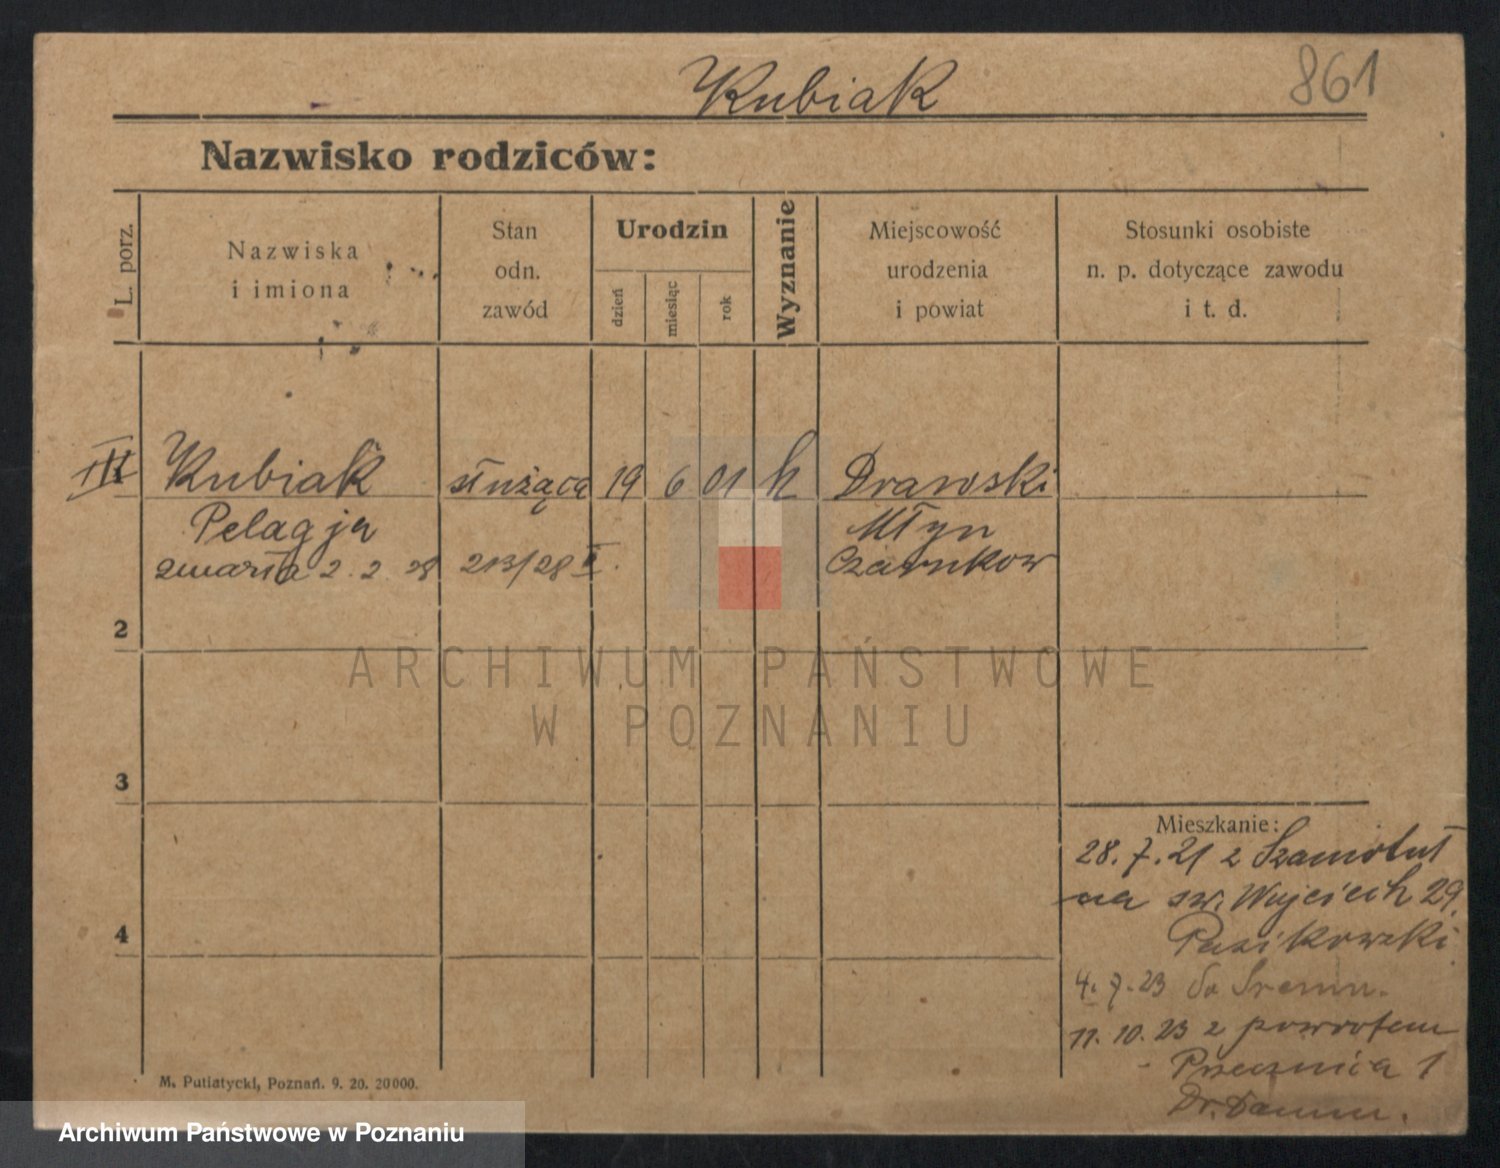 Kubiak
861
Nazwisko rodziców:
L. porz.
Nazwiska
i imiona
Stan
odn.
zawód
Urodzin
dzień
miesiąc
rok
Wyznanie
Miejscowość
urodzenia
i powiat
Stosunki osobiste
n. p. dotyczące zawodu
i t. d.
Kubiak służąca 19 6 01 k Drawski
Pelagja Młyn
zmarła 2. 2. 28 213/28 II. Czarnkow
2
3
4
Mieszkanie:
28. 7. 21 z Szamotuł
na sw. Wojciech 29.
Pasikowski
4. 7. 23 do Sremu.
11. 10. 23 z powrotem
- Przecznica 1
Dr.
M. Putiatycki, Poznań. 9. 20. 20000.
ARCHIWUM PAŃSTWOWE
W POZNANIU
Archiwum Państwowe w Poznaniu